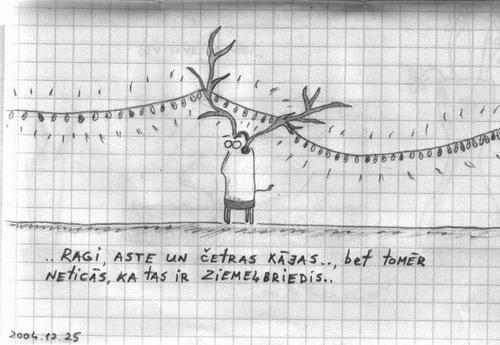 .. RAGI, ASTE UN ČETRAS KĀJAS.., bet TOMĒR
NETICĀS, KA TAS IR ZIEMEĻBRIEDIS..
2004.12.25